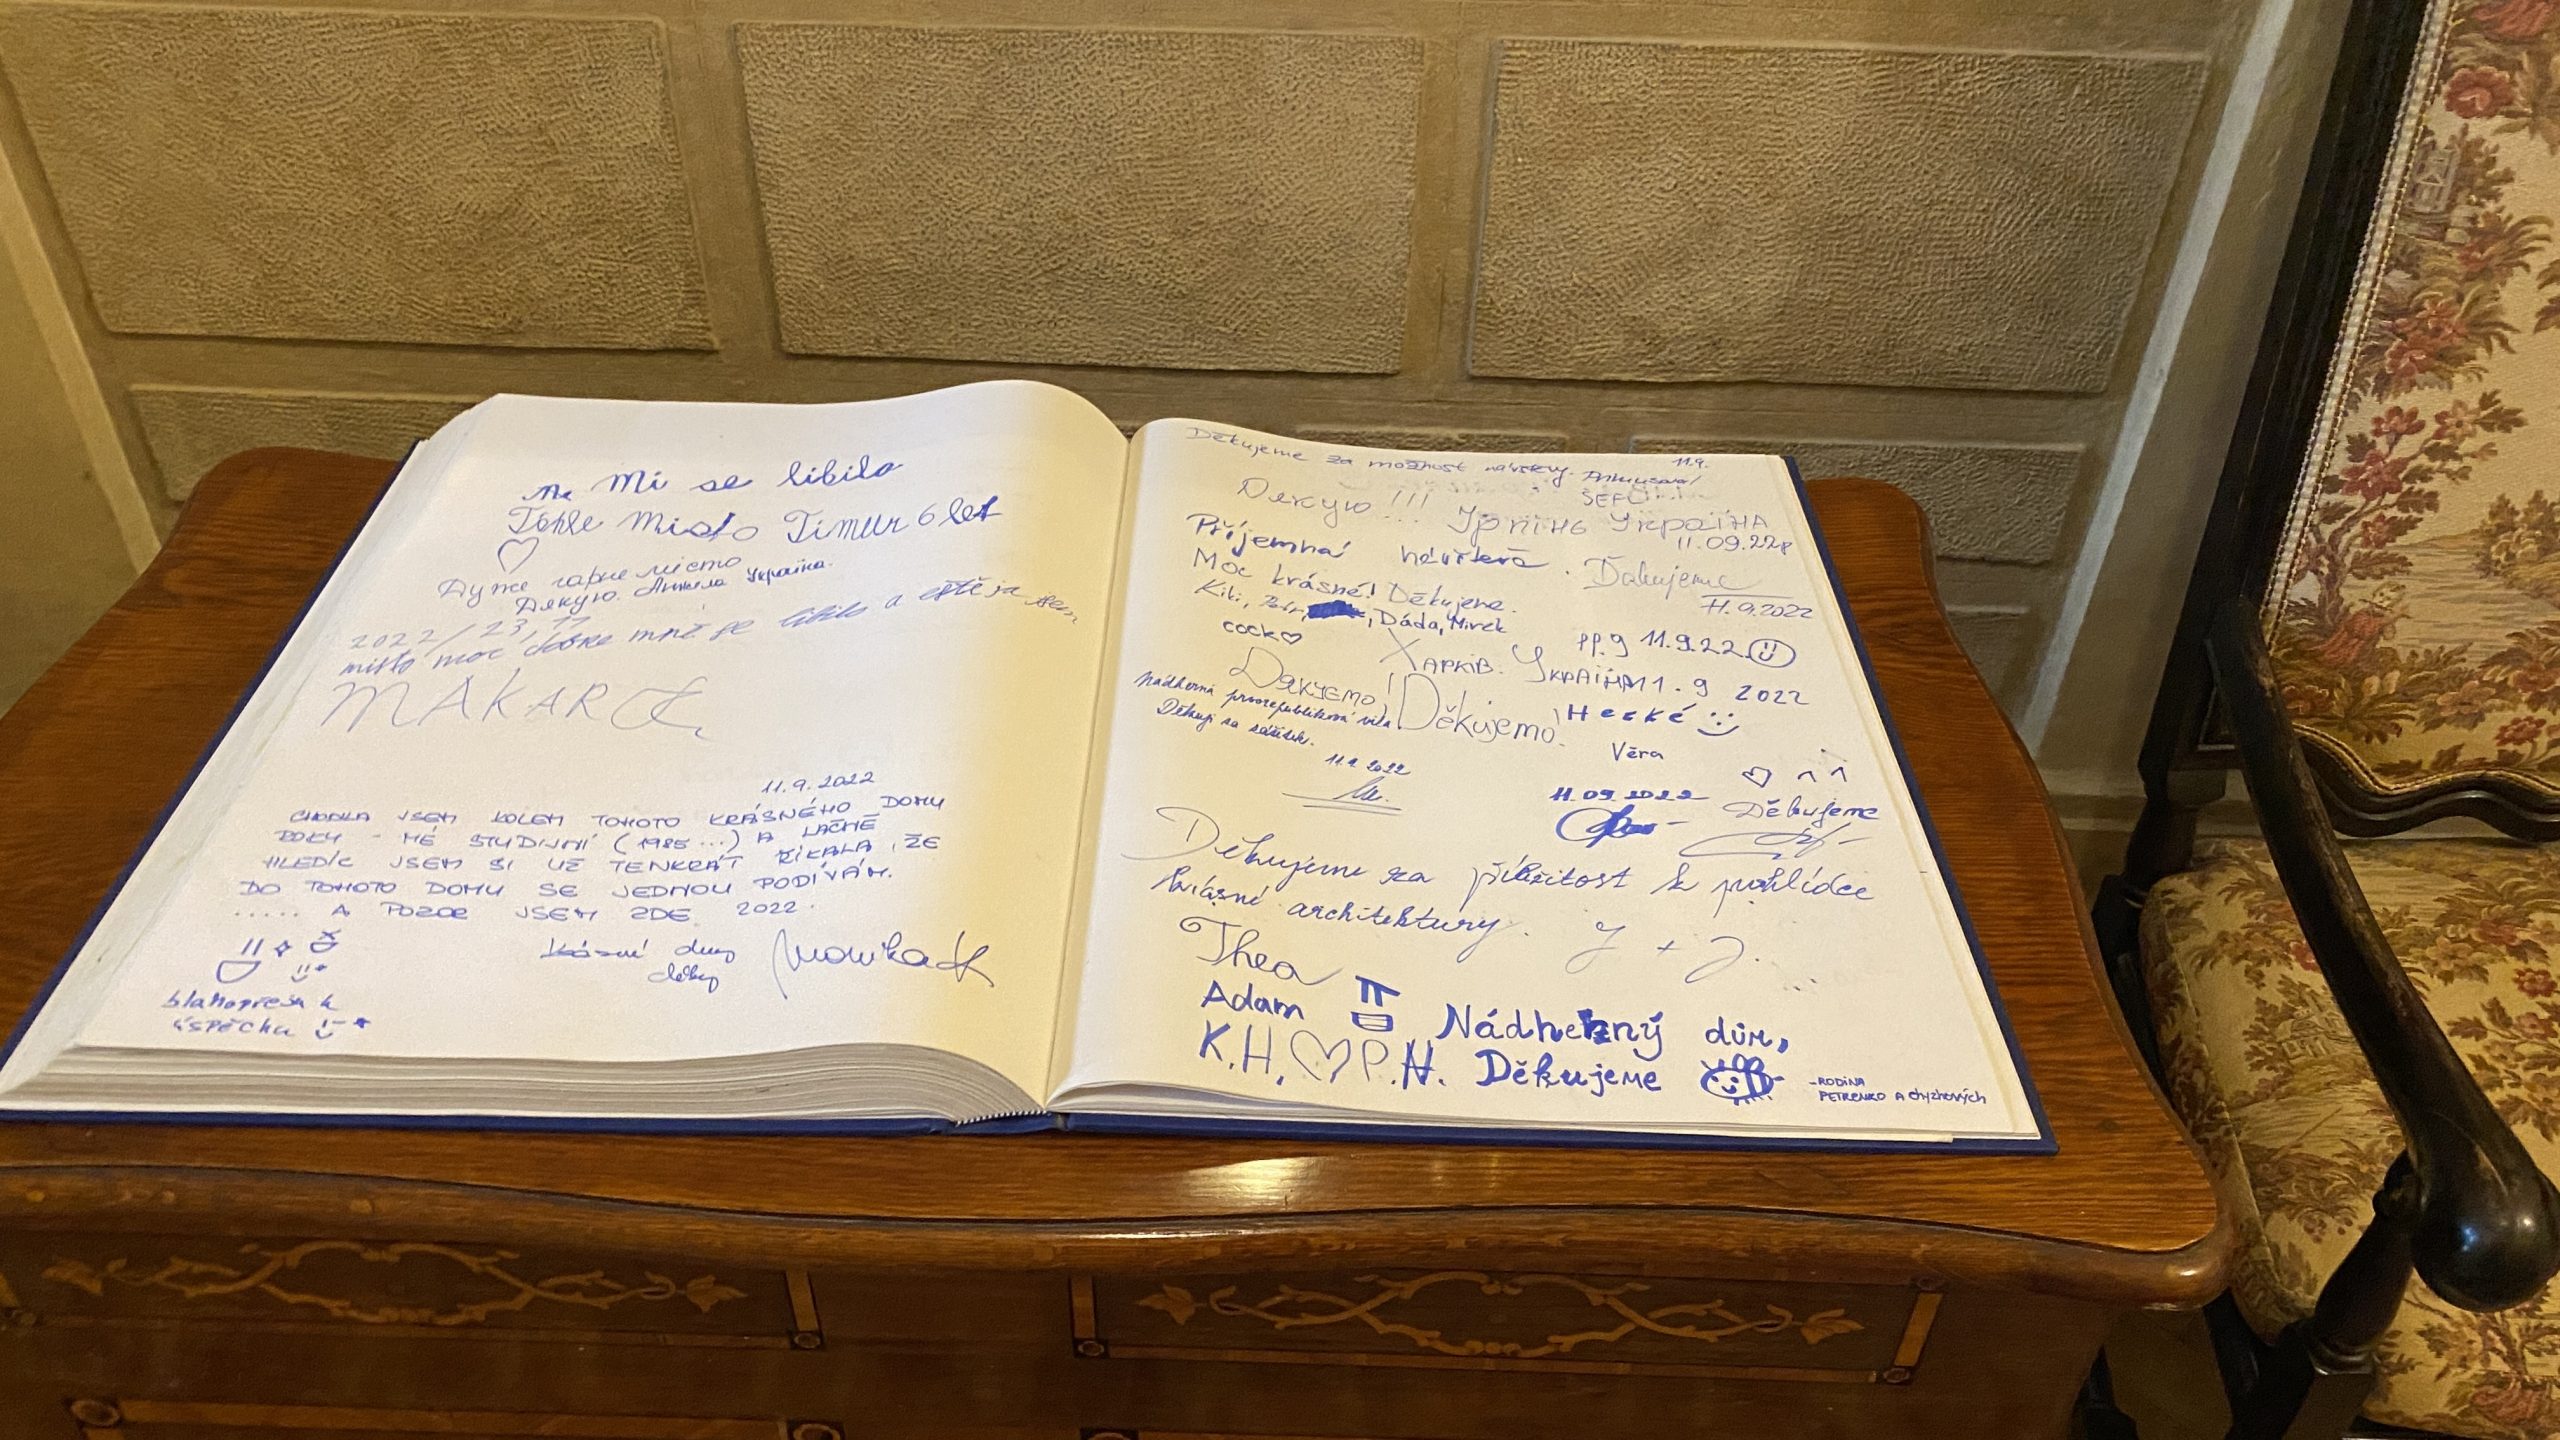 Mi se libilo
Tohle Misto Timur 6 let
Дуже гарне місто
Дякую. Україна.
2022/23,11
misto moc dobre mně se libilo a eště ja sem
MAKAR
11.9.2022
CHODILA JSEM KOLEM TOHOTO KRÁSNÉHO DOMU
ROKY - MÉ STUDIJNÍ (1985...) A LAČNĚ
HLEDÍC JSEM SI UŽ TENKRÁT ŘÍKALA, ŽE
DO TOHOTO DOMU SE JEDNOU PODÍVÁM.
..... A POZOR JSEM ZDE 2022.
Krásné dny
díky Monika
blahopřeju k
úspěchu
Děkujeme za možnost návštěvy. 11.9.
Дякую!!! Ірпінь Україна
11.09.22р
Příjemná návštěva. Děkujeme
11.9.2022
Moc krásné! Děkujeme.
Kiki, Petr, Dáda, Mirek
cock♡
pp.9 11.9.22
Харків. Україна 11.9 2022
Дякуємо! Děkujemo! Hezké
Nádherná prvorepubliková vila.
Děkuji za zážitek.
11.9.2022
Věra
11.09.2022
Děkujeme
Děkujeme za příležitost k prohlídce
krásné architektury. J + J.
Thea
Adam
K.H. ♡ P.N.
Nádherný dům,
Děkujeme
-RODINA
PETRENKO A Chyzhových